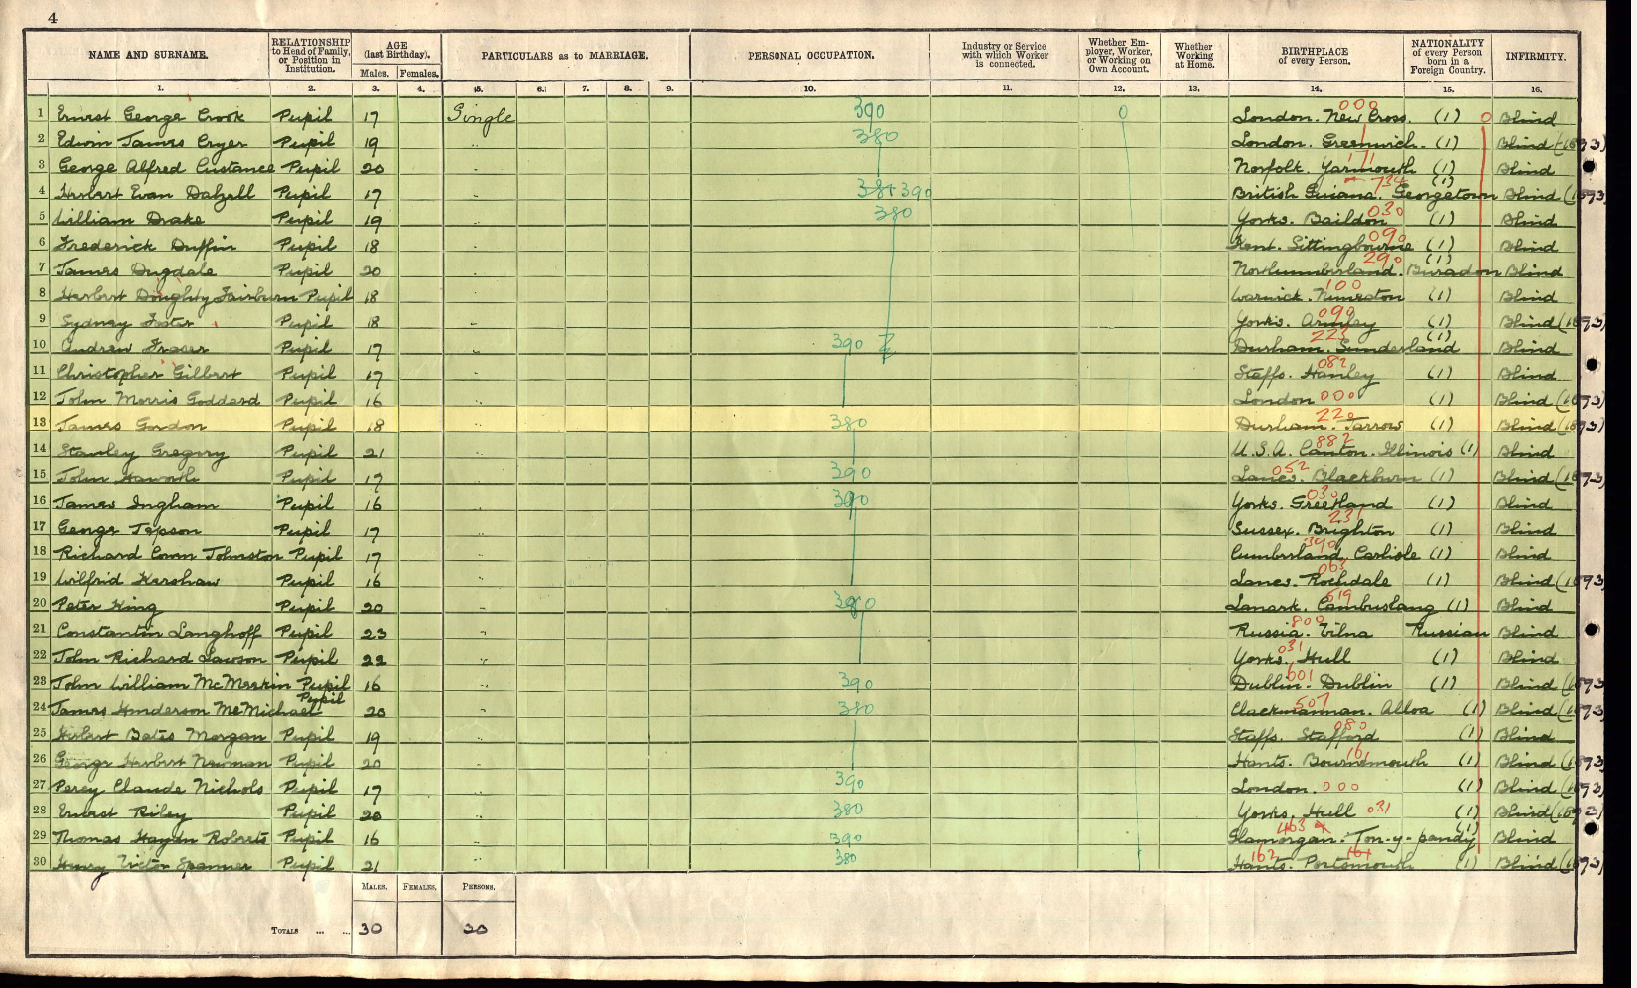 4
NAME AND SURNAME. RELATIONSHIP to Head of Family, or Position in Institution. AGE (last Birthday). Males. Females. PARTICULARS as to MARRIAGE. PERSONAL OCCUPATION. Industry or Service with which Worker is connected. Whether Employer, Worker, or Working on Own Account. Whether Working at Home. BIRTHPLACE of every Person. NATIONALITY of every Person born in a Foreign Country. INFIRMITY.
1. 2. 3. 4. 5. 6. 7. 8. 9. 10. 11. 12. 13. 14. 15. 16.
1 Ernest George Crook Pupil 17 Single 390 0 London. New Cross. 000 (1) 0 Blind
2 Edwin James Cryer Pupil 19 „ 380 London. Greenwich. (1) Blind (1893)
3 George Alfred Custance Pupil 20 „ Norfolk. Yarmouth 171 (1) Blind
4 Herbert Evan Dalzell Pupil 17 „ 380 390 British Guiana. Georgetown 734 (1) Blind (1893)
5 William Drake Pupil 19 „ 380 Yorks. Baildon 030 (1) Blind
6 Frederick Duffin Pupil 18 „ Kent. Sittingbourne 090 (1) Blind
7 James Dugdale Pupil 20 „ Northumberland. Buradon 290 (1) Blind
8 Herbert Doughty Fairburn Pupil 18 „ Warwick. Nuneaton 100 (1) Blind
9 Sydney Foster Pupil 18 „ Yorks. Armley (1) Blind (1893)
10 Andrew Fraser Pupil 17 „ 390 Durham. Sunderland 223 (1) Blind
11 Christopher Gilbert Pupil 17 „ Staffs. Hanley 082 (1) Blind
12 John Morris Goddard Pupil 16 „ London 000 (1) Blind (1893)
13 James Gordon Pupil 18 „ 380 Durham. Jarrow 220 (1) Blind (1893)
14 Stanley Gregory Pupil 21 „ U.S.A. Canton. Illinois 882 (1) Blind
15 John Haworth Pupil 17 „ 390 Lancs. Blackburn 052 (1) Blind (1893)
16 James Ingham Pupil 16 „ 390 Yorks. Greetland 030 (1) Blind
17 George Jepson Pupil 17 „ Sussex. Brighton 231 (1) Blind
18 Richard Conn Johnston Pupil 17 „ Cumberland. Carlisle 390 (1) Blind
19 Wilfrid Kershaw Pupil 16 „ Lancs. Rochdale 063 (1) Blind (1893)
20 Peter King Pupil 20 „ 380 Lanark. Cambuslang 619 (1) Blind
21 Constantin Langhoff Pupil 23 „ Russia. Vilna 800 Russian Blind
22 John Richard Lawson Pupil 22 „ Yorks. Hull 031 (1) Blind
23 John William McMeekin Pupil 16 „ 390 Dublin. Dublin 601 (1) Blind (1893)
24 James Henderson McMichael Pupil 20 „ 380 Clackmannan. Alloa 507 (1) Blind (1893)
25 Herbert Bates Morgan Pupil 19 „ Staffs. Stafford 080 (1) Blind
26 George Herbert Newman Pupil 20 „ Hants. Bournemouth 161 (1) Blind (1893)
27 Percy Claude Nichols Pupil 17 „ 390 London. 000 (1) Blind (1893)
28 Ernest Riley Pupil 20 „ 380 Yorks. Hull 031 (1) Blind (1893)
29 Thomas Haydn Roberts Pupil 16 „ 390 Glamorgan. Ton-y-pandy 463 (1) Blind
30 Henry Victor Spanner Pupil 21 „ 380 Hants. Portsmouth 162 161 (1) Blind (1893)
MALES. FEMALES. PERSONS.
TOTALS ... ... 30 30